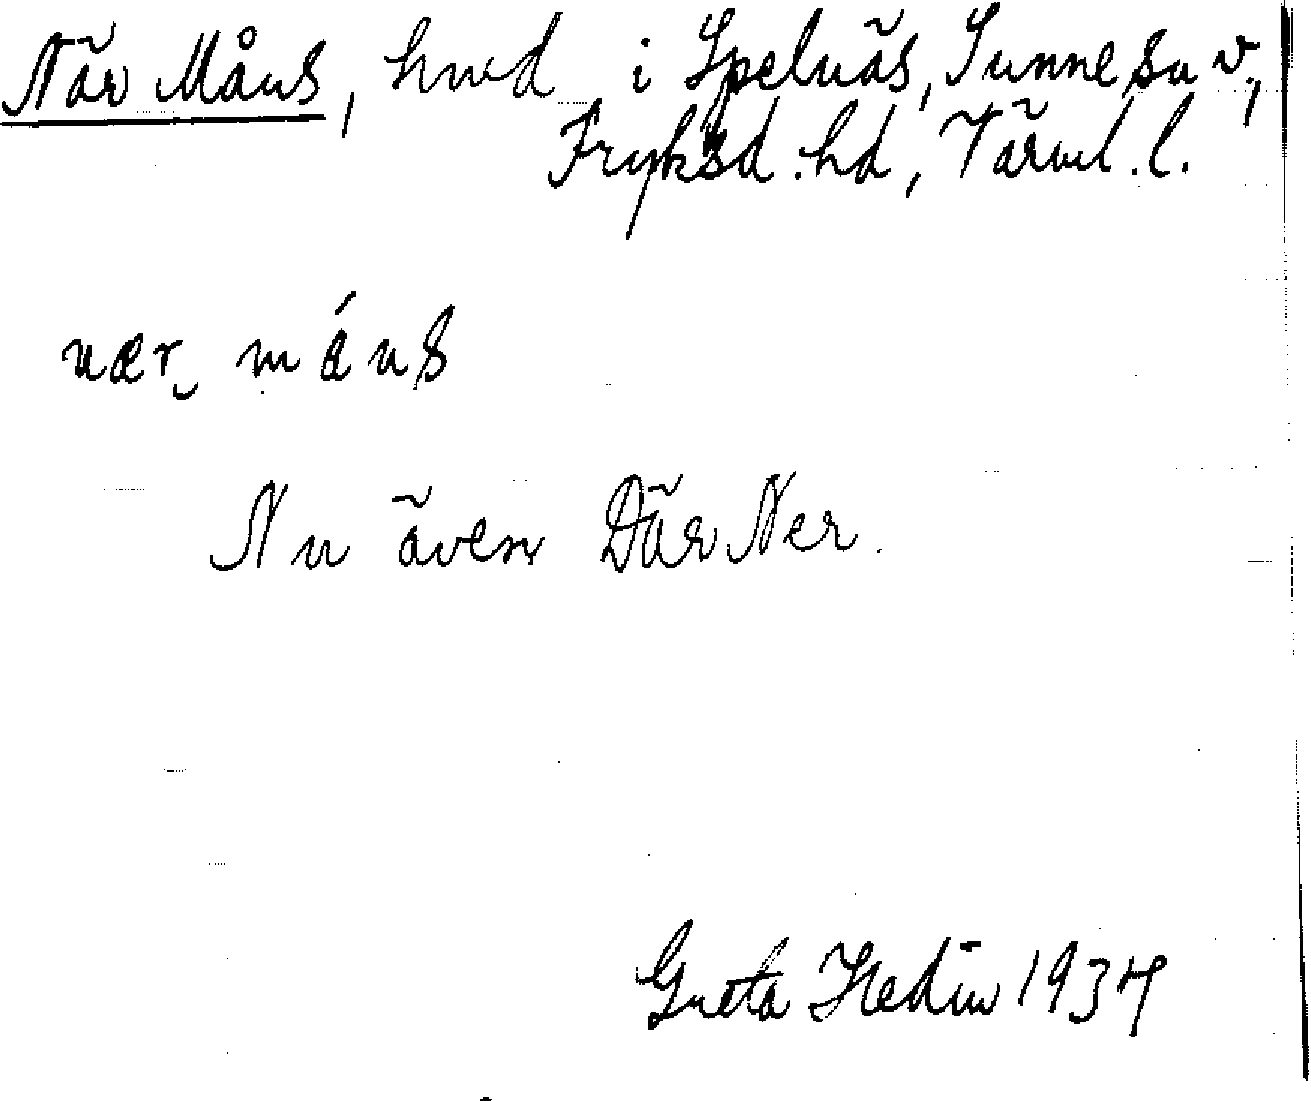 När Måns, hmd i Spelnäs, Sunne sn v,
Fryksd. hd, Värml. l.
nær måns
Nu även Där Ner.
Greta Hedin 1934